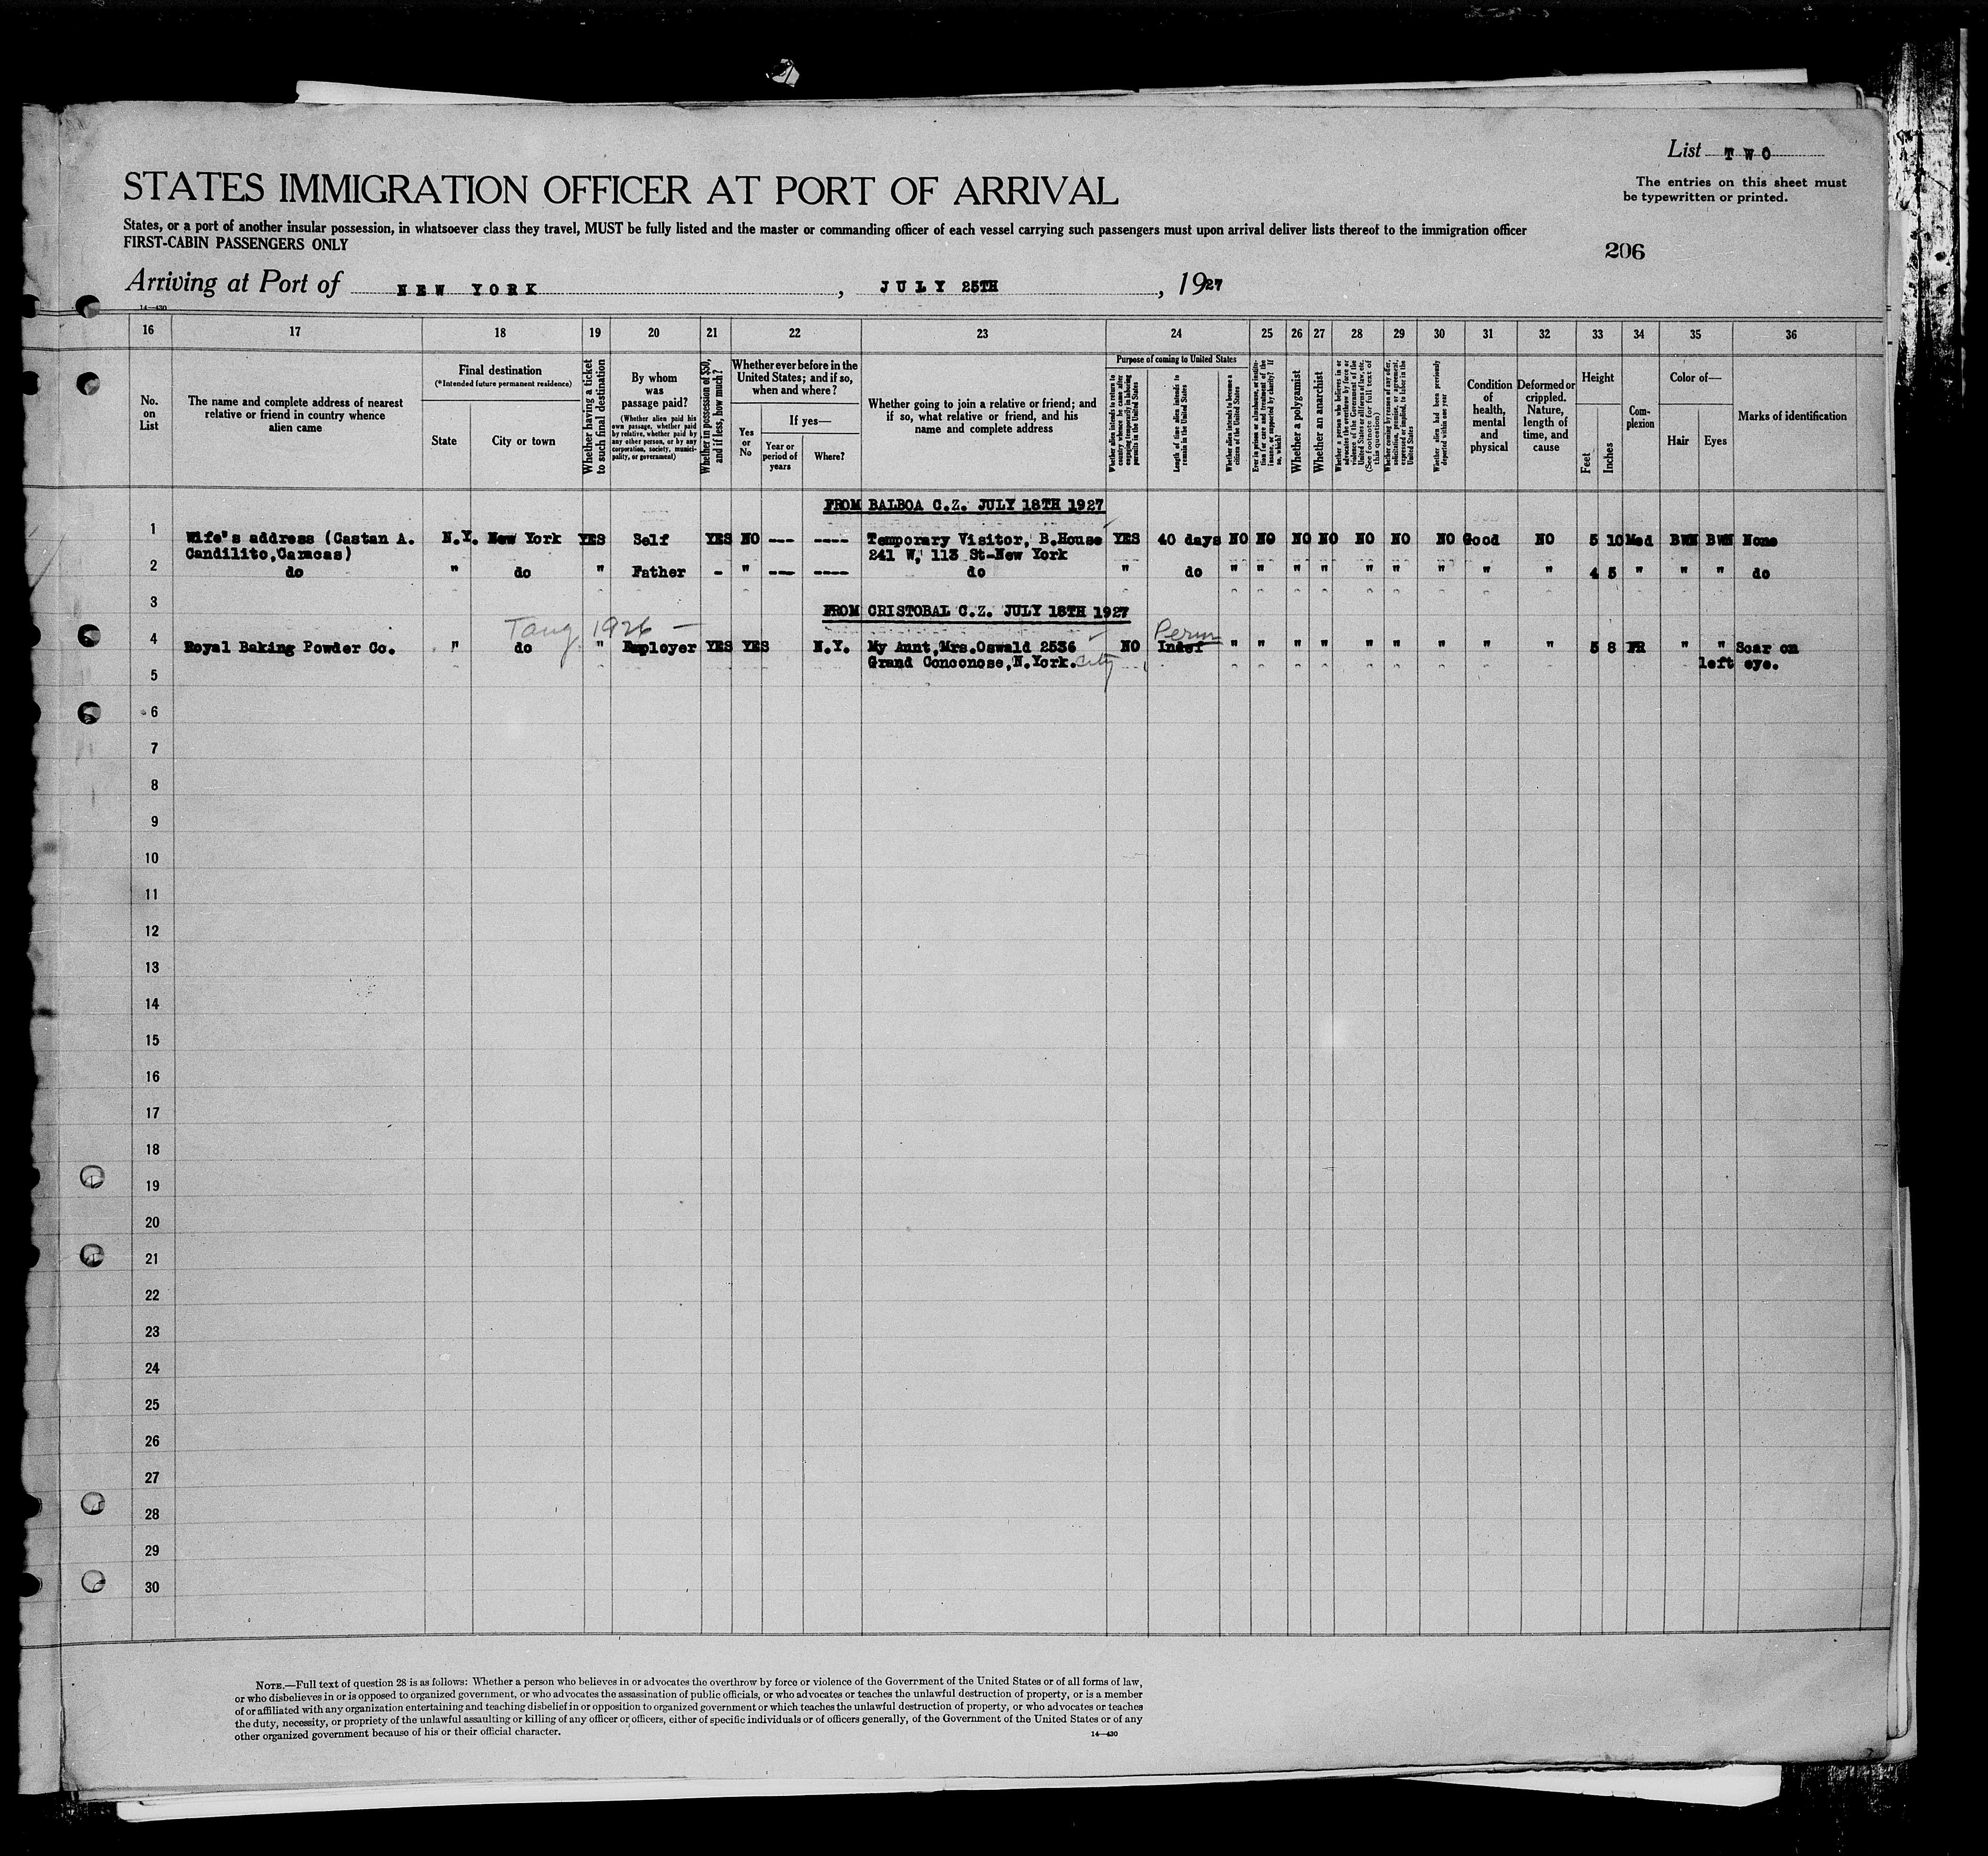 List T W O
STATES IMMIGRATION OFFICER AT PORT OF ARRIVAL
The entries on this sheet must
be typewritten or printed.
States, or a port of another insular possession, in whatsoever class they travel, MUST be fully listed and the master or commanding officer of each vessel carrying such passengers must upon arrival deliver lists thereof to the immigration officer
FIRST-CABIN PASSENGERS ONLY
206
Arriving at Port of NEW YORK, JULY 25TH, 1927
14—430
16 17 18 19 20 21 22 23 24 25 26 27 28 29 30 31 32 33 34 35 36
No.
on
List
The name and complete address of nearest
relative or friend in country whence
alien came
Final destination
(*Intended future permanent residence)
State
City or town
Whether having a ticket
to such final destination
By whom
was
passage paid?
(Whether alien paid his
own passage, whether paid
by relative, whether paid by
any other person, or by any
corporation, society, munici-
pality, or government)
Whether in possession of $50,
and if less, how much?
Whether ever before in the
United States; and if so,
when and where?
Yes
or
No
If yes—
Year or
period of
years
Where?
Whether going to join a relative or friend; and
if so, what relative or friend, and his
name and complete address
Purpose of coming to United States
Whether alien intends to return to
country whence he came after
engaging temporarily in laboring
pursuits in the United States
Length of time alien intends to
remain in the United States
Whether alien intends to become a
citizen of the United States
Ever in prison or almshouse, or institu-
tion for care and treatment of the
insane, or supported by charity? If
so, which?
Whether a polygamist
Whether an anarchist
Whether a person who believes in or
advocates the overthrow by force or
violence of the Government of the
United States or all forms of law, etc.
(See footnote for full text of
this question)
Whether coming by reason of any offer,
solicitation, promise, or agreement,
expressed or implied, to labor in the
United States
Whether alien had been previously
deported within one year
Condition
of
health,
mental
and
physical
Deformed or
crippled.
Nature,
length of
time, and
cause
Height
Feet
Inches
Com-
plexion
Color of—
Hair
Eyes
Marks of identification
FROM BALBOA C.Z. JULY 18TH 1927
1 Wife's address (Castan A. N.Y. New York YES Self YES NO --- ---- Temporary Visitor, B.House YES 40 days NO NO NO NO NO NO NO Good NO 5 10 Med BWN BWN None
Candilito,Caracas) 241 W, 113 St-New York
2 do " do " Father - " --- ---- do " do " " " " " " " " " 4 5 " " " do
3
FROM CRISTOBAL C.Z. JULY 18TH 1927
1926 — Perm
4 Royal Baking Powder Co. " do " Employer YES YES N.Y. My Aunt,Mrs.Oswald 2536 NO Indef " " " " " " " " " 5 8 FR " " Scar on
Grand Conconose,N.York. City left eye.
5
6
7
8
9
10
11
12
13
14
15
16
17
18
19
20
21
22
23
24
25
26
27
28
29
30
NOTE.—Full text of question 28 is as follows: Whether a person who believes in or advocates the overthrow by force or violence of the Government of the United States or of all forms of law,
or who disbelieves in or is opposed to organized government, or who advocates the assassination of public officials, or who advocates or teaches the unlawful destruction of property, or is a member
of or affiliated with any organization entertaining and teaching disbelief in or opposition to organized government or which teaches the unlawful destruction of property, or who advocates or teaches
the duty, necessity, or propriety of the unlawful assaulting or killing of any officer or officers, either of specific individuals or of officers generally, of the Government of the United States or of any
other organized government because of his or their official character.
14—430